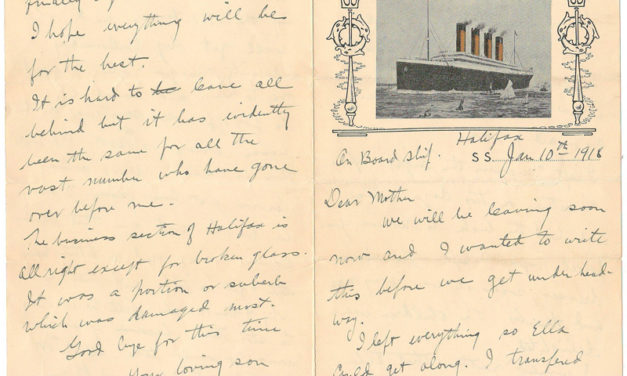 finally
I hope everything will be
for the best.
It is hard to leave all
behind but it has evidently
been the same for all the
vast number who have gone
over before me.
The business section of Halifax is
all right except for broken glass.
It was a portion or suburb
which was damaged most.
Good bye for this time
Your loving son
Halifax
On Board Ship. S S. Jan 10th 1918
Dear Mother
We will be leaving soon
now and I wanted to write
this before we get under head-
way.
I left everything so Ella
could get along. I transfered